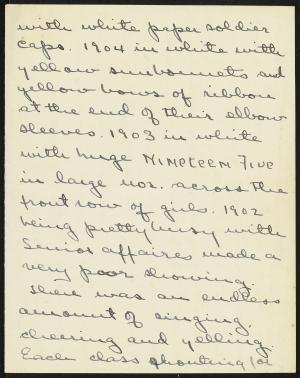 with white paper soldier
caps. 1904 in white with
yellow sunbonnets and
yellow bows of ribbon
at the end of their elbow
sleeves. 1903 in white
with huge Nineteen Five
in large nos. across the
front row of girls. 1902
being pretty busy with
Senior affaires made a
very poor showing.
There was an endless
amount of singing,
cheering and yelling.
Each class shouting for